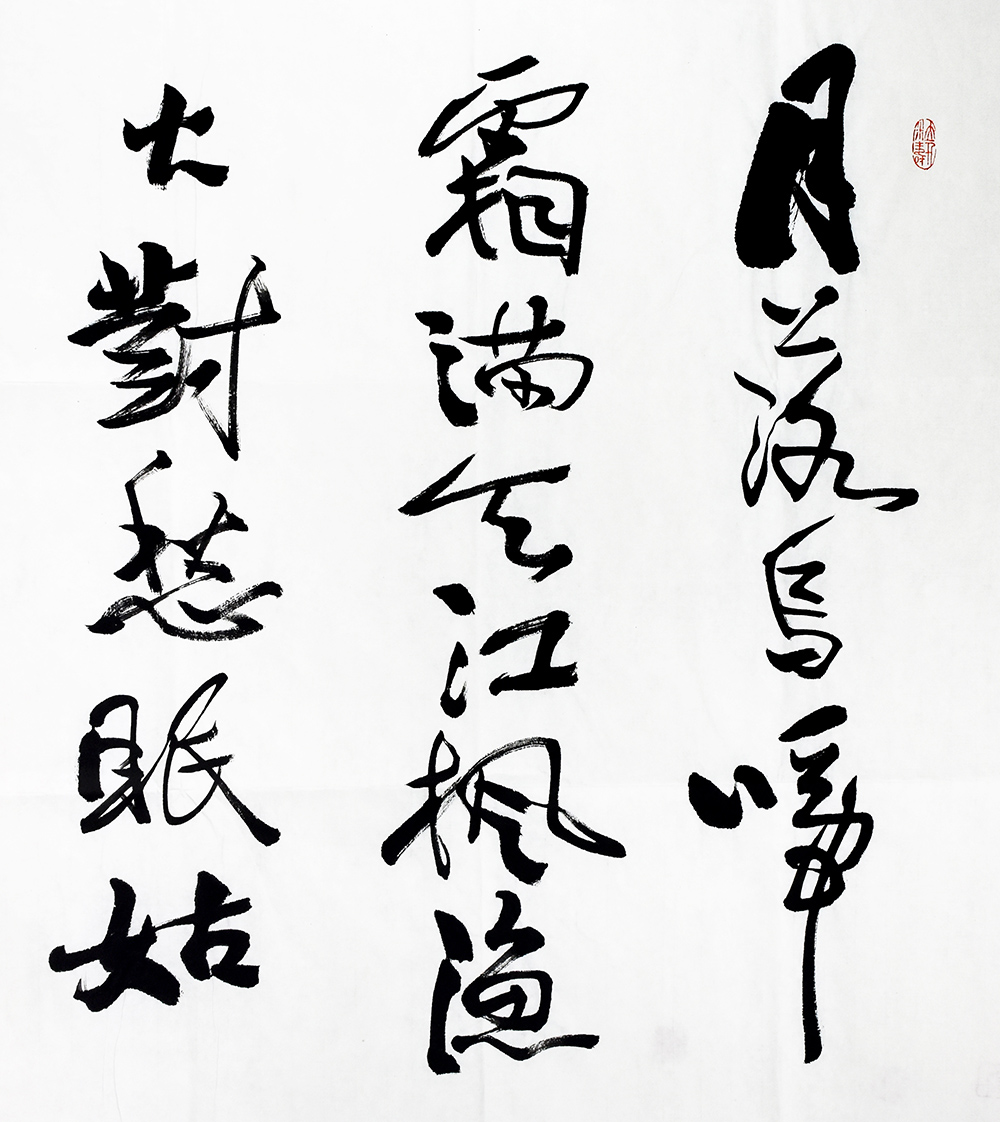 月落烏啼
霜満天江楓漁
火對愁眠姑